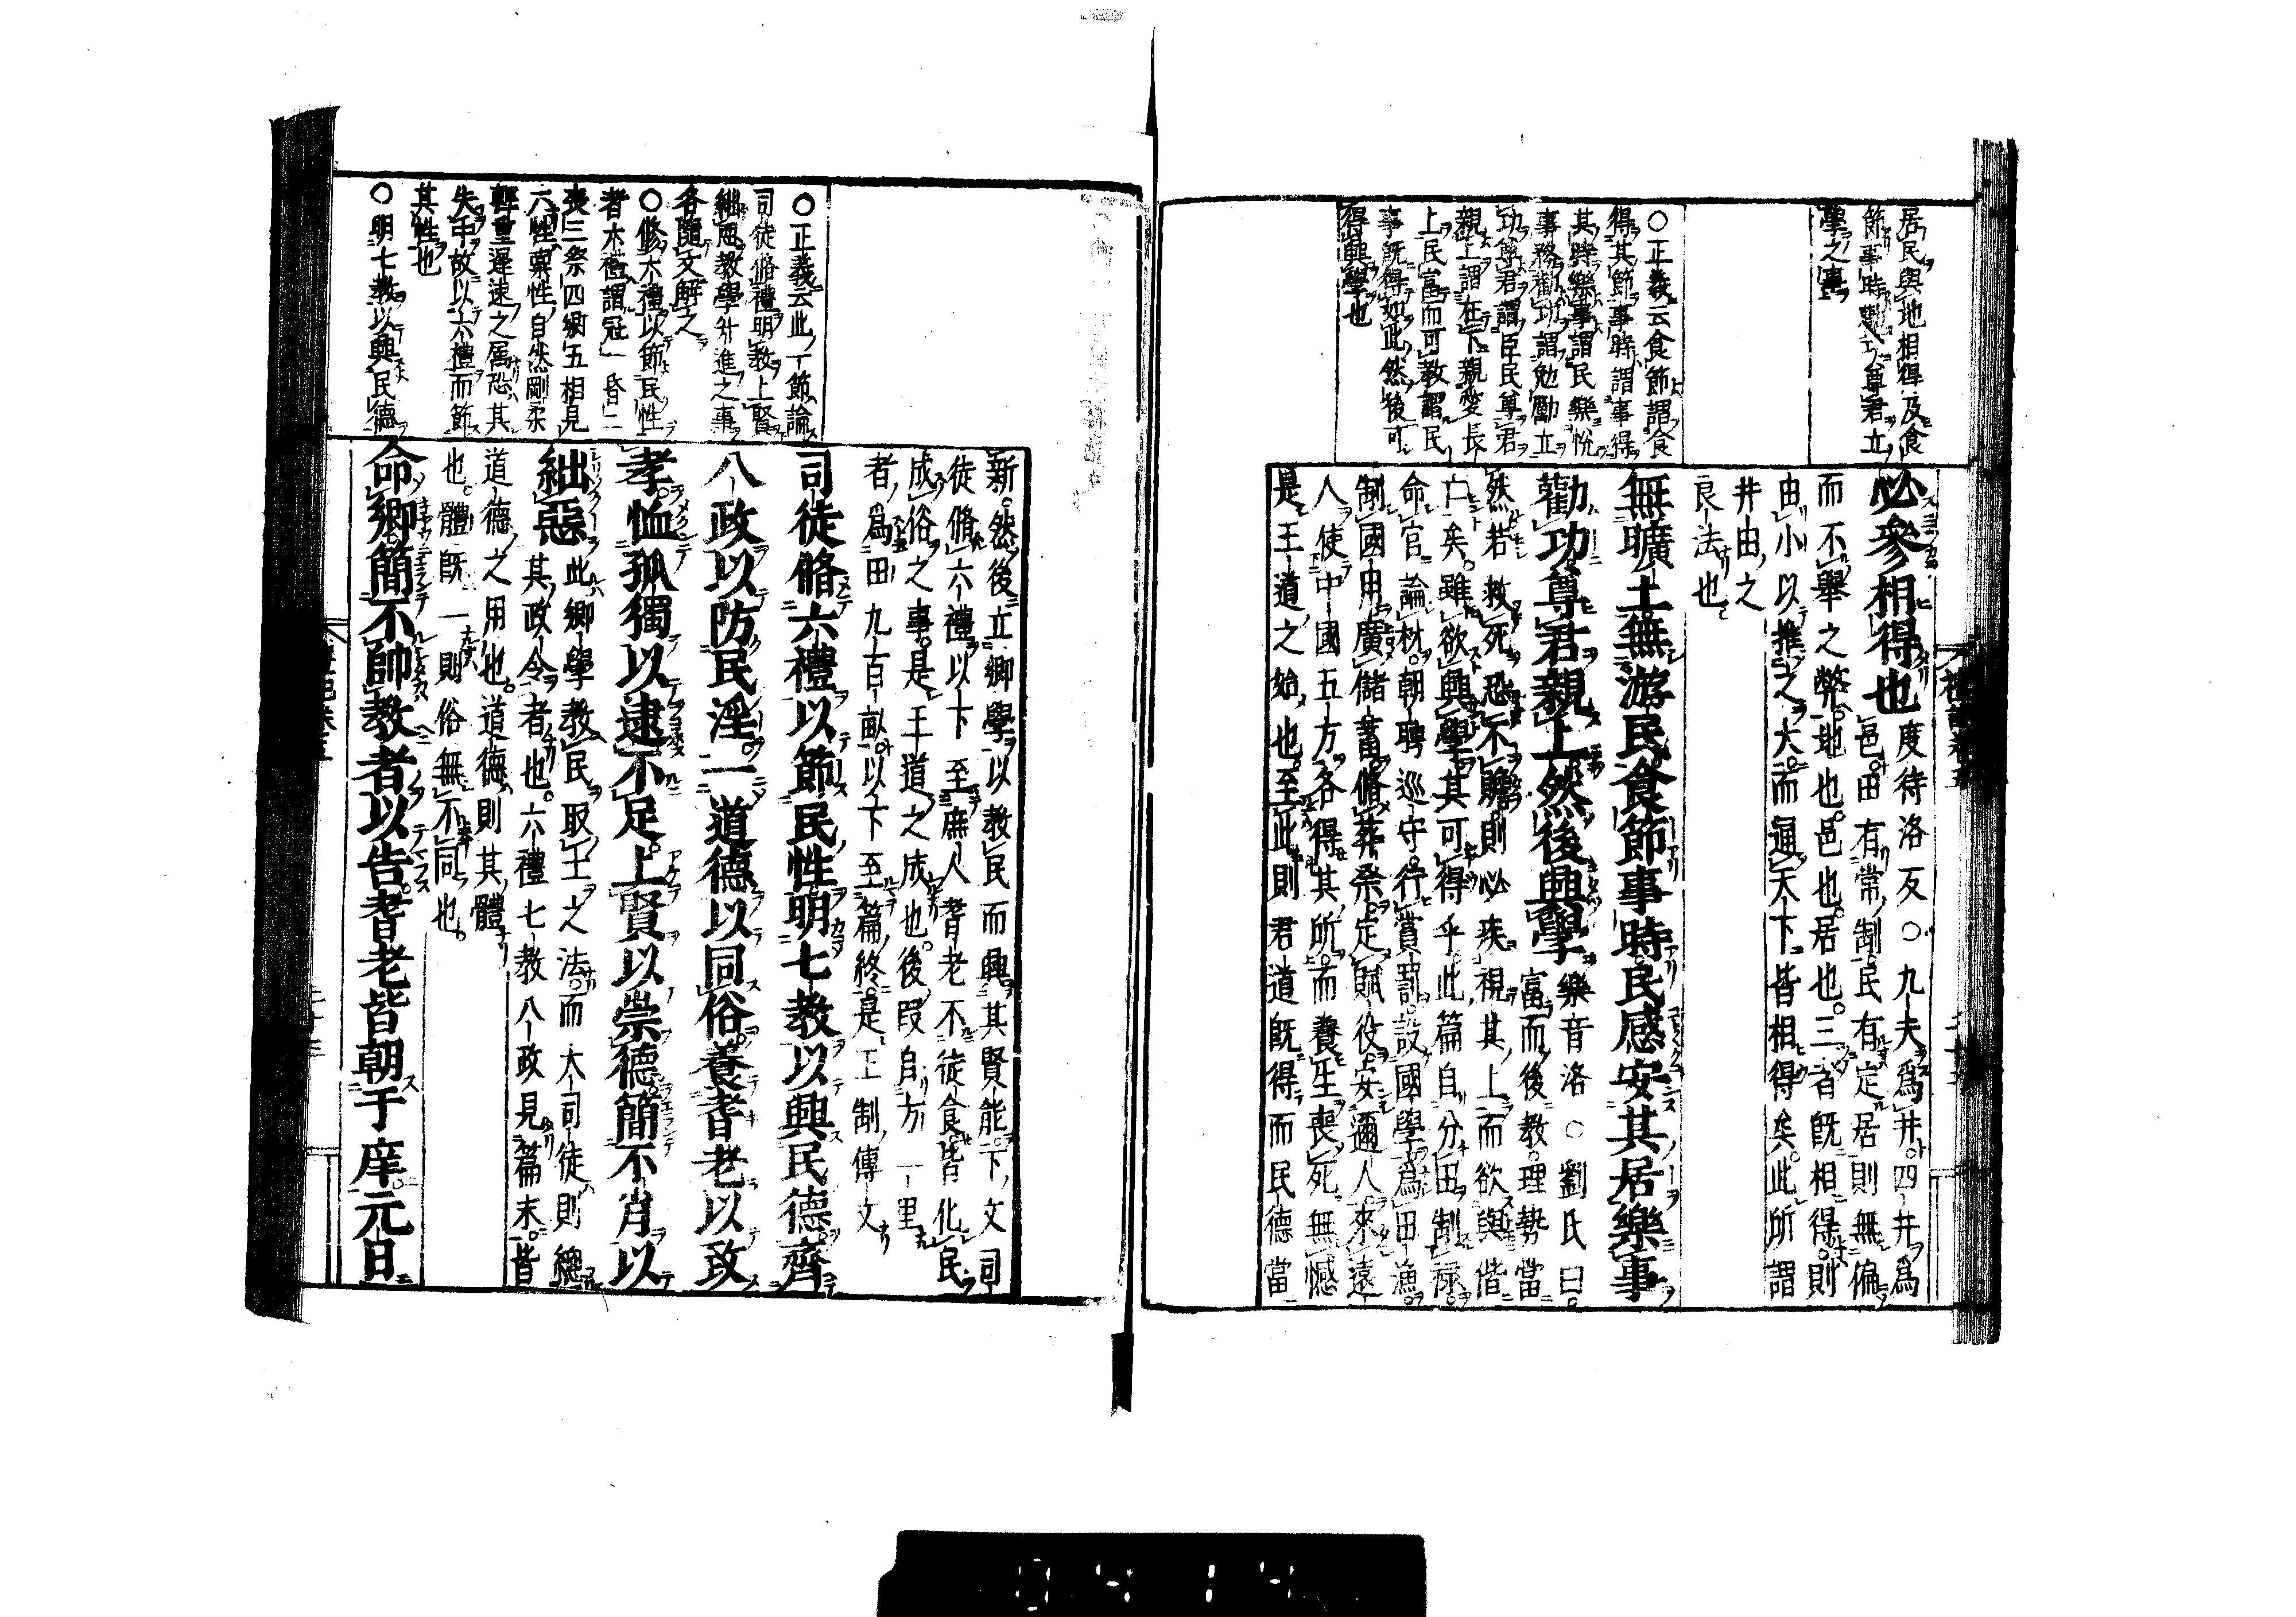 居民與地相得及食
節事時勸功尊君立
學之事
○正義云食節謂食
得其節事時謂事得
其時樂事謂民樂悅
事務勸功謂勉勵立
功尊君謂臣民尊君
親上謂在下親愛長
上民富而可教謂民
事既得如此然後可
得興學也
必參相得也度待洛反○九夫爲井四井爲
邑田有常制民有定居則無偏
而不舉之弊地也邑也居也三者既相得則
由小以推之大而通天下皆相得矣此所謂
井田之
良法也
無曠土無游民食節事時民咸安其居樂事
勸功尊君親上然後興學樂音洛○劉氏曰
富而後教理勢當
然若救死恐不贍則必疾視其上而欲與偕
亡矣雖欲興學其可得乎此篇自分田制祿
命官論材朝聘巡守行賞罰設國學爲田漁
制國用廣儲蓄脩葬祭定賦役安邇人來遠
人使中國五方各得其所而養生喪死無憾
是王道之始也至此則君道既得而民德當
○正義云此一節論
司徒脩禮明教上賢
絀惡教學升進之事
各隨文解之
○修六禮以節民性
者六禮謂冠一昏二
喪三祭四鄉五相見
六性稟性自然剛柔
輕重遲速之属恐其
失中故以六禮而節
其性也
○明七教以興民德
新然後立鄉學以教民而興其賢能下文司
徒脩六禮以下至庶人耆老不徒食皆化民
成俗之事是王道之成也後段自方一里
者爲田九百畝以下至篇終是王制傳文
司徒脩六禮以節民性明七教以興民德齊
八政以防民淫一道德以同俗養耆老以致
孝恤孤獨以逮不足上賢以崇德簡不肖以
絀惡此鄉學教民取士之法而大司徒則總
其政令者也六禮七教八政見篇末皆
道德之用也道德則其體
也體既一則俗無不同也
命鄉簡不帥教者以告耆老皆朝于庠元日